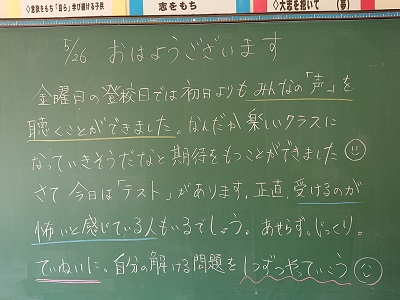 ◇意欲をもち「自ら」学び続ける子供
志をもち
◇大志を抱いて (夢)
5/26 おはようございます
金曜日の登校日では初日よりもみんなの「声」を
聴くことができました。なんだか楽しいクラスに
なっていきそうだなと期待をもつことができました
さて今日は「テスト」があります。正直、受けるのが
怖いと感じている人もいるでしょう。あせらず。じっくり。
ていねいに。自分の解ける問題を1つずつやっていこう